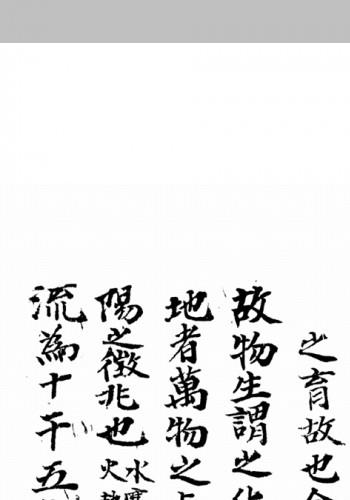 之育故也
故物生謂之化
地者萬物之上
陽之徵兆也水寒火熱
流為十干五